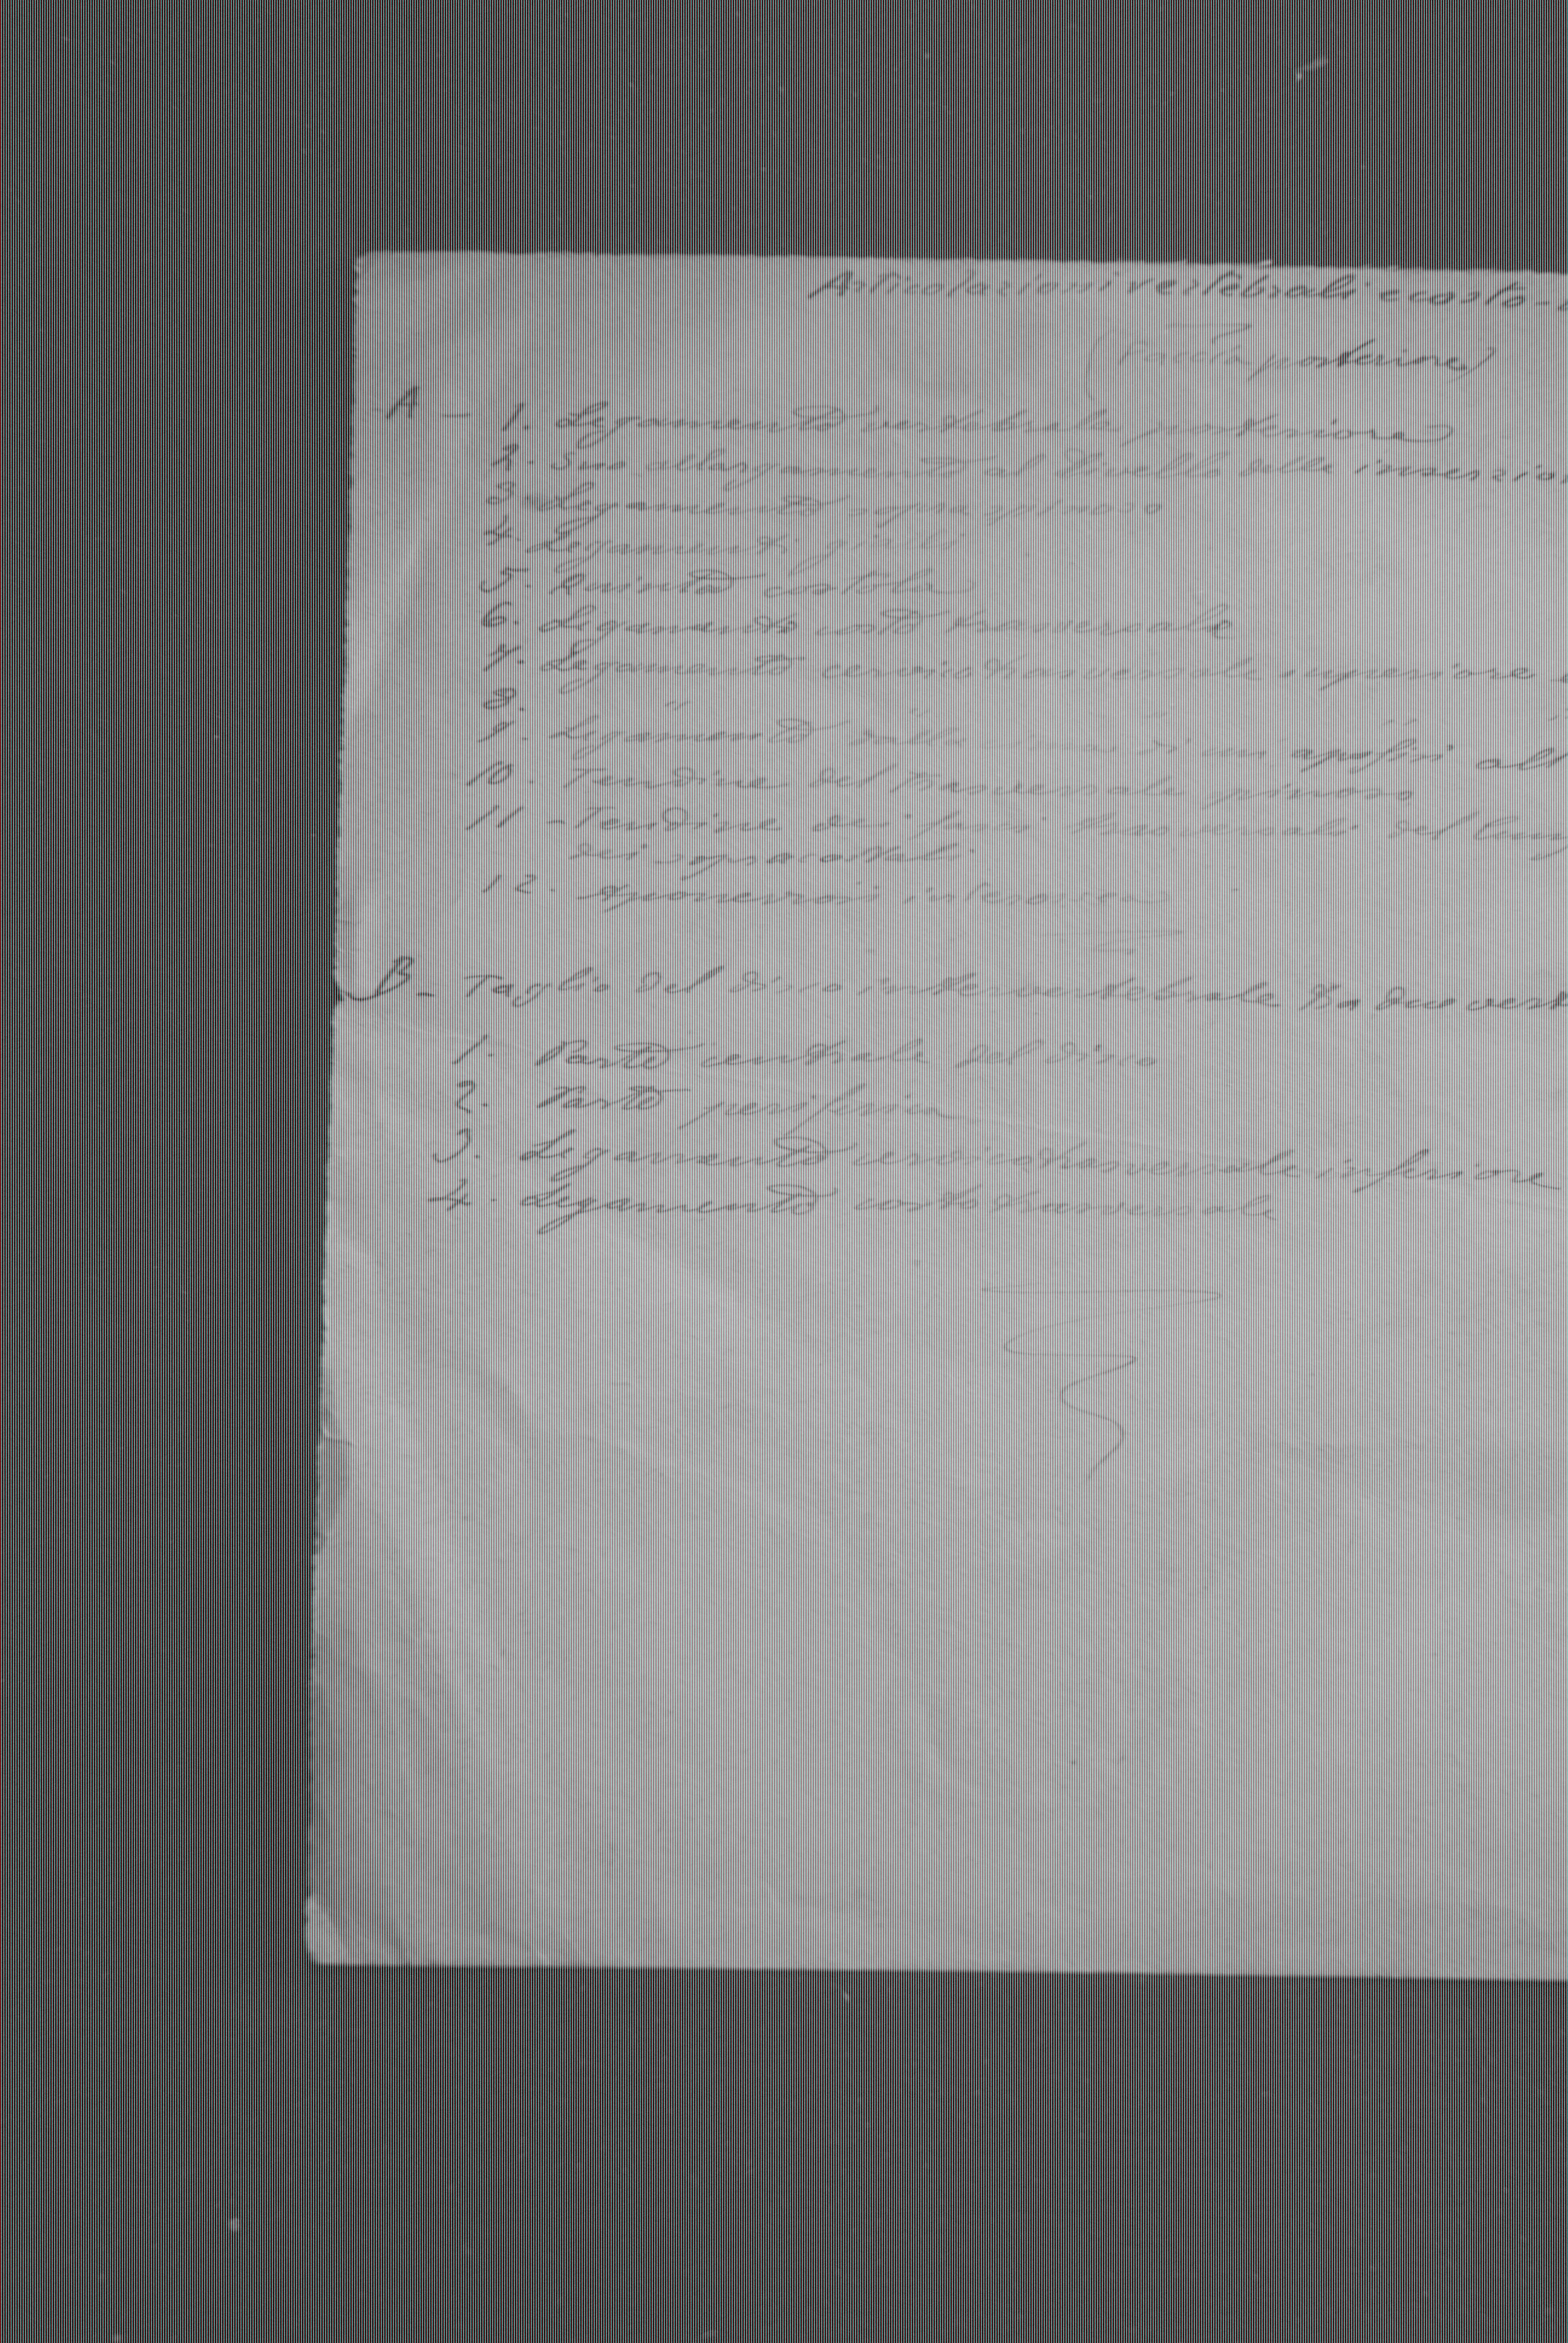 Articolazioni vertebrali e costo-
(Faccia posteriore)
A - 1. Legamento vertebrale posteriore
2. Suo allargamento al livello delle inserzio
3. Legamento sopraspinoso
4. Legamenti gialli
5. Quinta costola
6. Legamento costo trasversale
7. Legamento cervicotrasversale superiore
8. " " "
9. Legamento dalla cima di un' apofisi all
10. Tendine del Trasversale spinoso
11 - Tendine dei fasci trasversali del lung
dei sopracostali
12. Aponevrosi interossea
B - Taglio del disco intervertebrale tra due vert
1. Parte centrale del disco
2. Parte periferica
3. Legamento cervicotrasversale inferiore
4. Legamento costotrasversale